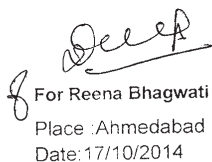 For Reena Bhagwati
Place :Ahmedabad
Date:17/10/2014